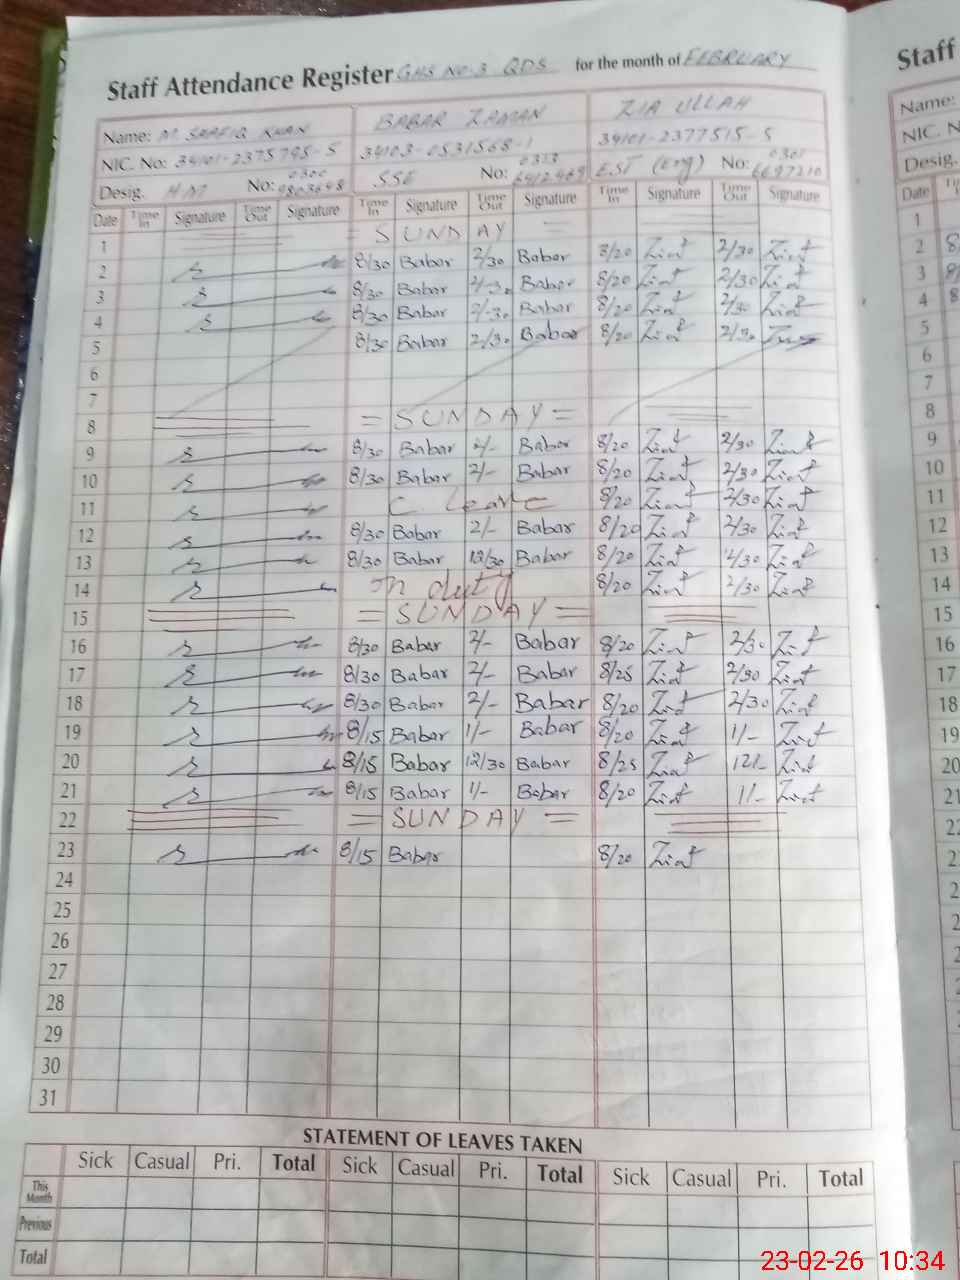 Staff Attendance Register GHS No.3 QDS for the month of FEBRUARY
Name: M SHAFIQ KHAN BABAR ZAMAN ZIA ULLAH
NIC. No: 34101-2375795-5 34103-0531568-1 34101-2377515-5
Desig. HM No: 0300 SSE No: 0333 EST (Eng) No: 0301 6697210
Date Time In Signature Time Out Signature Time In Signature Time Out Signature Time In Signature Time Out Signature
1 = SUNDAY =
2 8/30 Babar 2/30 Babar 8/20 Ziaf 2/30 Ziaf
3 8/30 Babar 2/30 Babar 8/20 Ziaf 2/30 Ziaf
4 8/30 Babar 2/30 Babar 8/20 Ziaf 2/30 Ziaf
5 8/30 Babar 2/30 Babar 8/20 Ziaf 2/30
6
7
8 = SUNDAY =
9 8/30 Babar 2/- Babar 8/20 Ziaf 2/30 Ziaf
10 8/30 Babar 2/- Babar 8/20 Ziaf 2/30 Ziaf
11 C. leave 8/20 Ziaf 2/30 Ziaf
12 8/30 Babar 2/- Babar 8/20 Ziaf 2/30 Ziaf
13 8/30 Babar 12/30 Babar 8/20 Ziaf 12/30 Ziaf
14 On duty 8/20 Ziaf 2/30 Ziaf
15 = SUNDAY =
16 8/30 Babar 2/- Babar 8/20 Ziaf 2/30 Ziaf
17 8/30 Babar 2/- Babar 8/25 Ziaf 2/30 Ziaf
18 8/30 Babar 2/- Babar 8/20 Ziaf 2/30 Ziaf
19 8/15 Babar 1/- Babar 8/20 Ziaf 1/- Ziaf
20 8/15 Babar 12/30 Babar 8/25 Ziaf 12/- Ziaf
21 8/15 Babar 1/- Babar 8/20 Ziaf 1/- Ziaf
22 = SUNDAY =
23 8/15 Babar 8/20 Ziaf
24
25
26
27
28
29
30
31
STATEMENT OF LEAVES TAKEN
Sick Casual Pri. Total Sick Casual Pri. Total Sick Casual Pri. Total
This Month
Previous
Total
Staff
Name:
NIC. N
Desig.
Date
1
2
3
4
5
6
7
8
9
10
11
12
13
14
15
16
17
18
19
20
21
23-02-26 10:34